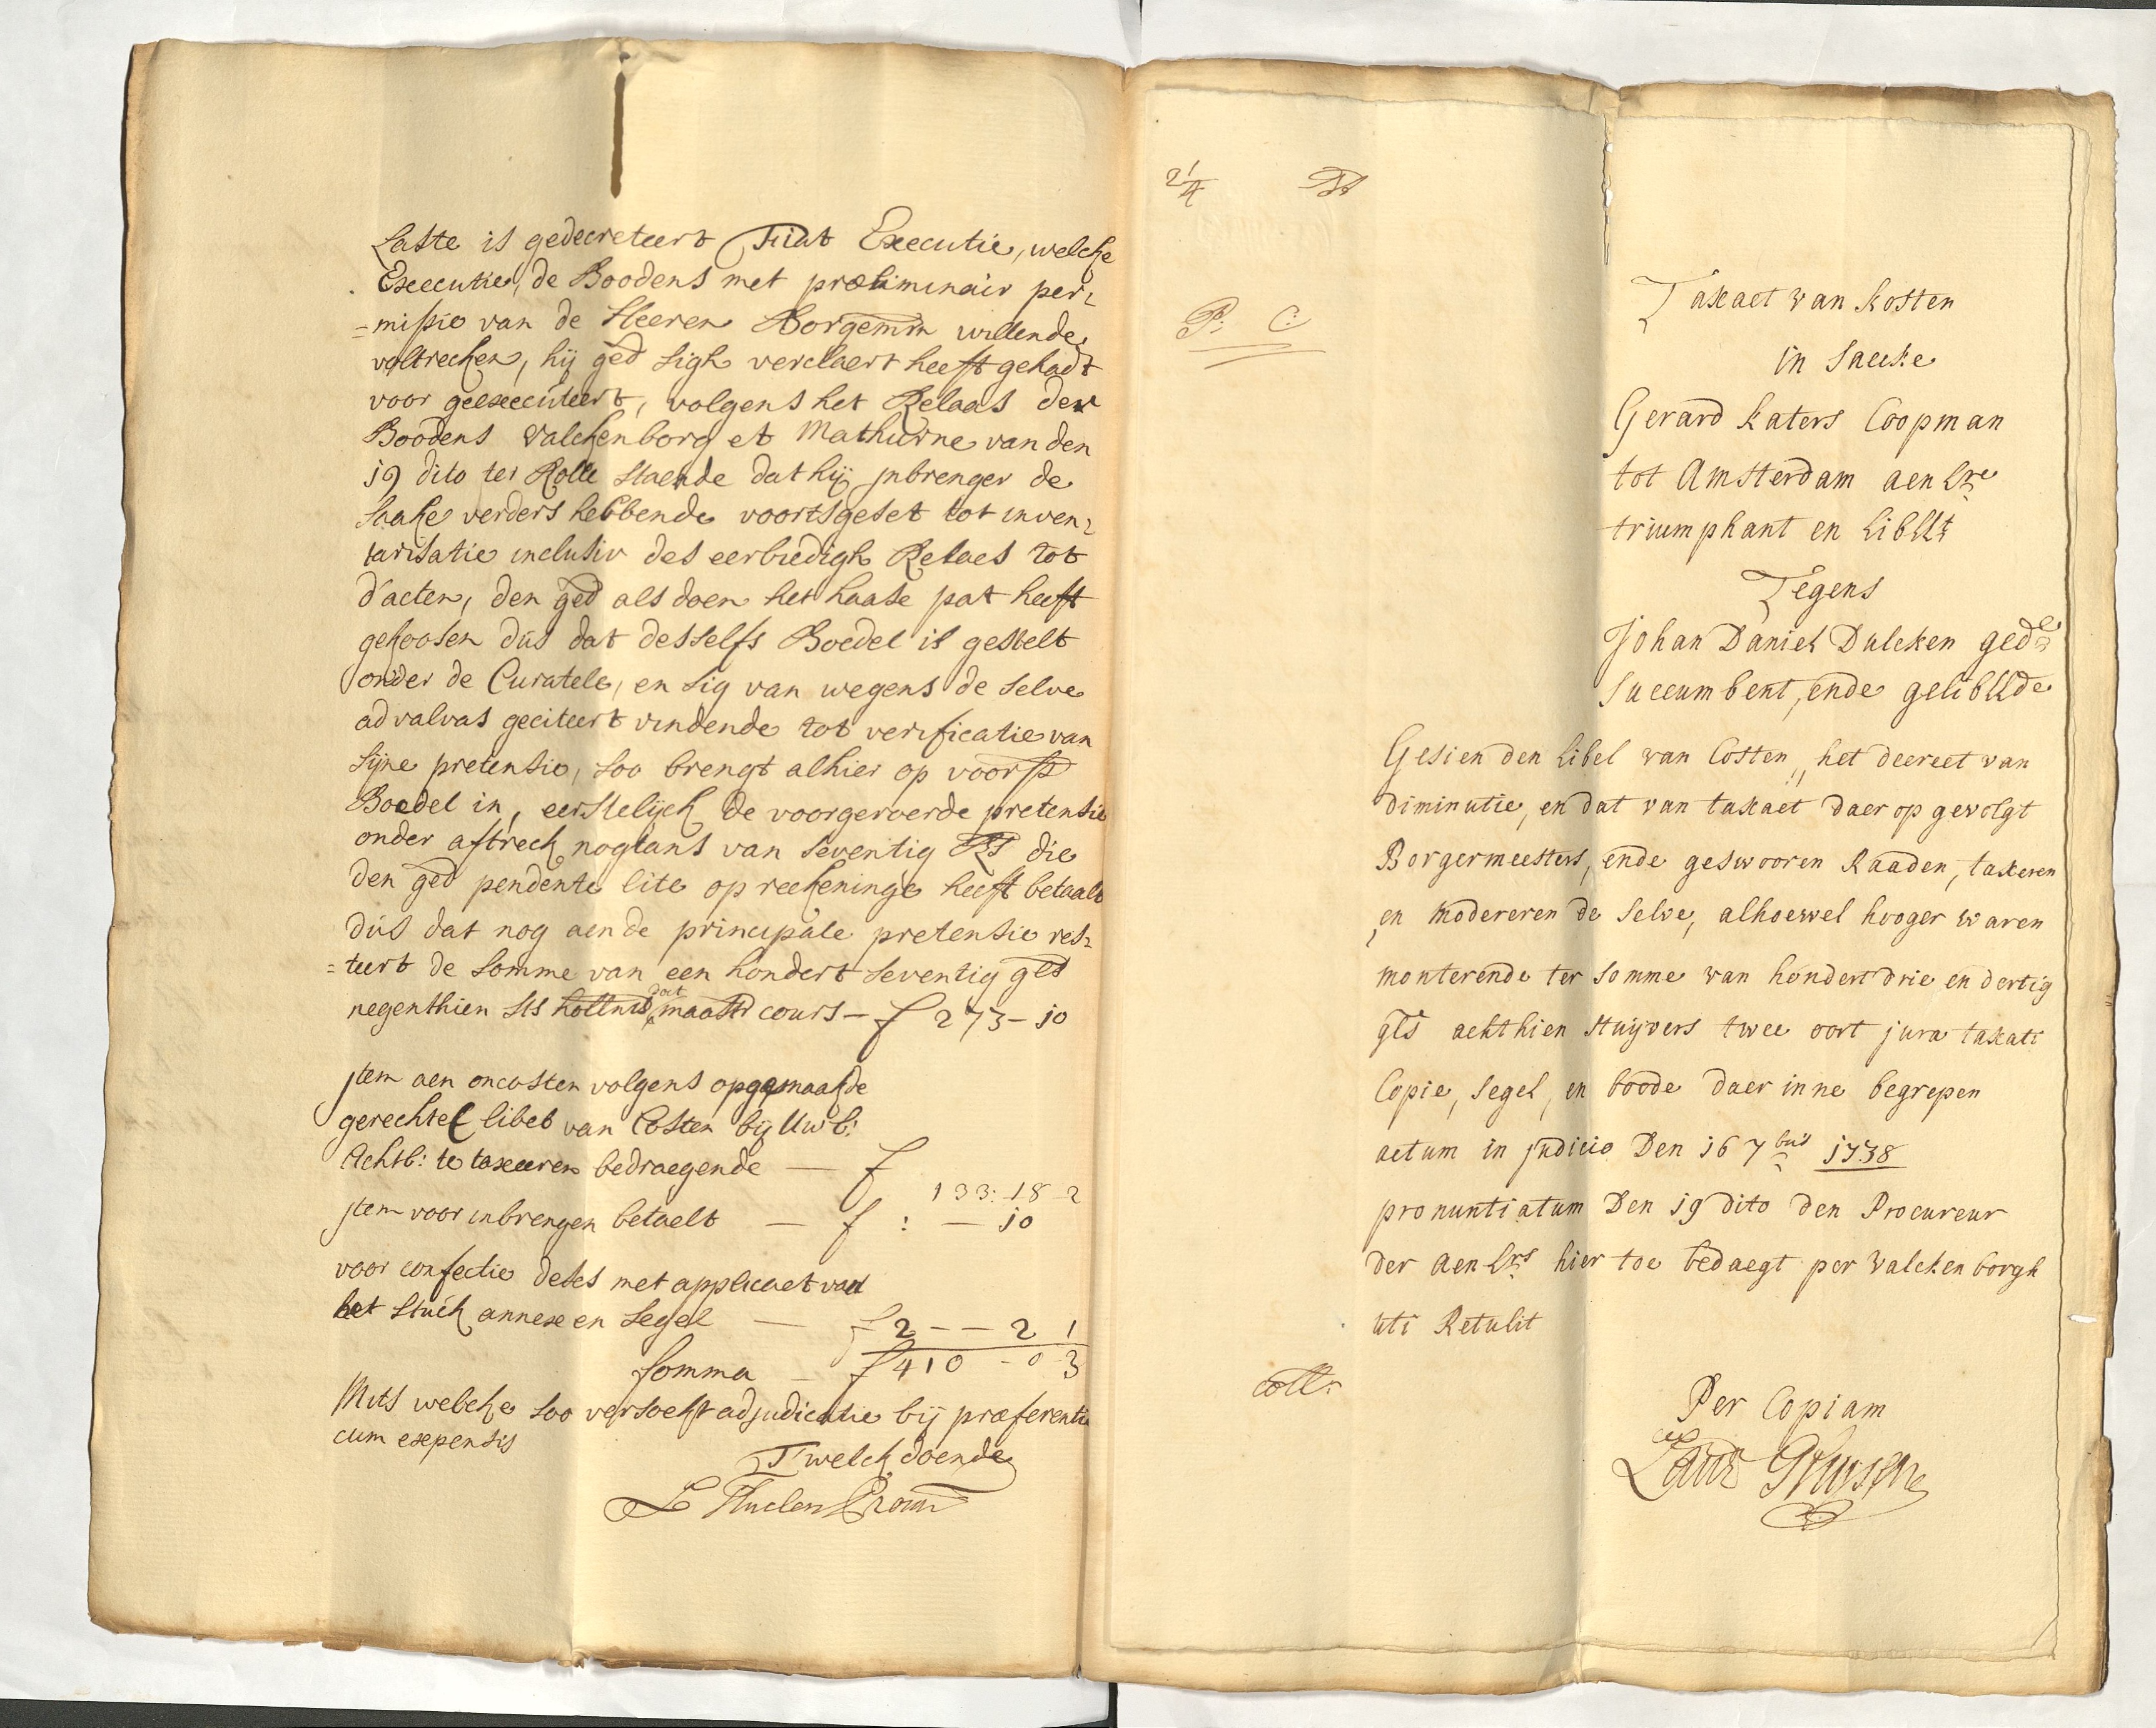 Laste is gedecreteert Fiat Executie, welcke
Executie, de Boodens met præliminair per¬
=missie van de Heeren Borgemrn willende
voltrecken, hij ged sigh verclaert heeft gehadt
voor geexecuteert, volgens het Relaas der
Boodens Valckenborg et Mathurne van den
19 dito ter Rolle staende dat hij inbrenger de
saake verders hebbende voortsgeset tot inven¬
tarisatie inclusiv des eerbiedigh Relaes tot
d'acten, den ged als doen het haase pat heeft
gekoosen dus dat desselfs Boedel is gestelt
onder de Curatele, en sig van wegens de selve
ad valvas geciteert vindende tot verificatie van
sijne pretensie, soo brengt alhier op voors
Boedel in, eerstelijck de voorgeroerde pretensie
onder aftreck nogtans van seventig Rs die
den ged pendente lite op reekeninge heeft betaalt
dus dat nog aen de principale pretensie res¬
=teert de somme van een hondert seventig gls
negenthien sts hollnts dat maastr cours – f 273 – 10
jtem aen oncosten volgens opgemaakde
gerechtel libel van Costen bij Uw b:
Achtb: te taxeeren bedraegende — f 133: 18 – 2
jtem voor inbrengen betaelt — f : — 10
voor confectie deses met applicaet van
het stuck annex en segel — f 2 – – 2 1
somma – f 410 – 0 – 3
Mits welcke soo versoekt adjudicatie bij præferentie
cum expensis
T welck doende
2 1/4
P: C:
Taxaet van kosten
in saecke
Gerard Katers Coopman
tot Amsterdam aenlre
triumphant en libllt
Tegens
Johan Daniel Dulcken gede
succumbent, ende gelibllde
Gesien den libel van Costen, het decreet van
diminutie, en dat van taxaet daer op gevolgt
Borgermeesters, ende geswooren Raaden, taxeren
en modereren de selve, alhoewel hooger waren
monterende ter somme van hondert drie en dertig
gls achthien stuijvers twee oort jura taxati
Copie, segel, en boode daer inne begrepen
actum in judicio Den 16 7bris 1738
pronuntiatum Den 19 dito den Procureur
der aenlrs hier toe bedaegt per Valckenborgh
uti Retulit
coll:
Per Copiam